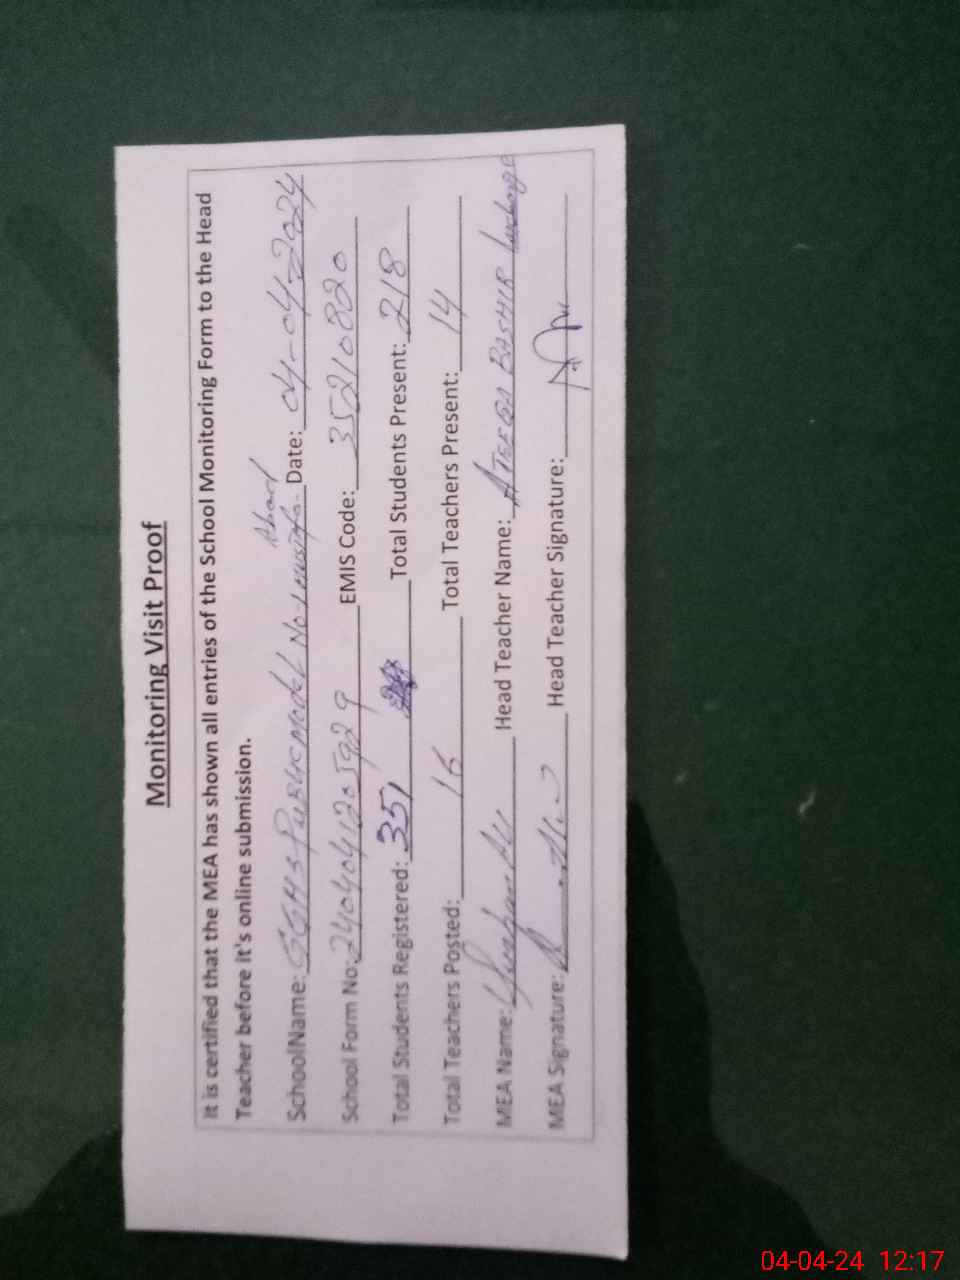 Monitoring Visit Proof
It is certified that the MEA has shown all entries of the School Monitoring Form to the Head
Teacher before it's online submission.
SchoolName: GGHS Public Model No-1 Mustafa Abad Date: 04-04-2024
School Form No: 2404041205929 EMIS Code: 35210820
Total Students Registered: 351 Total Students Present: 218
Total Teachers Posted: 16 Total Teachers Present: 14
MEA Name: Head Teacher Name: ATEEQA BASHIR Incharge
MEA Signature: Head Teacher Signature:
04-04-24 12:17